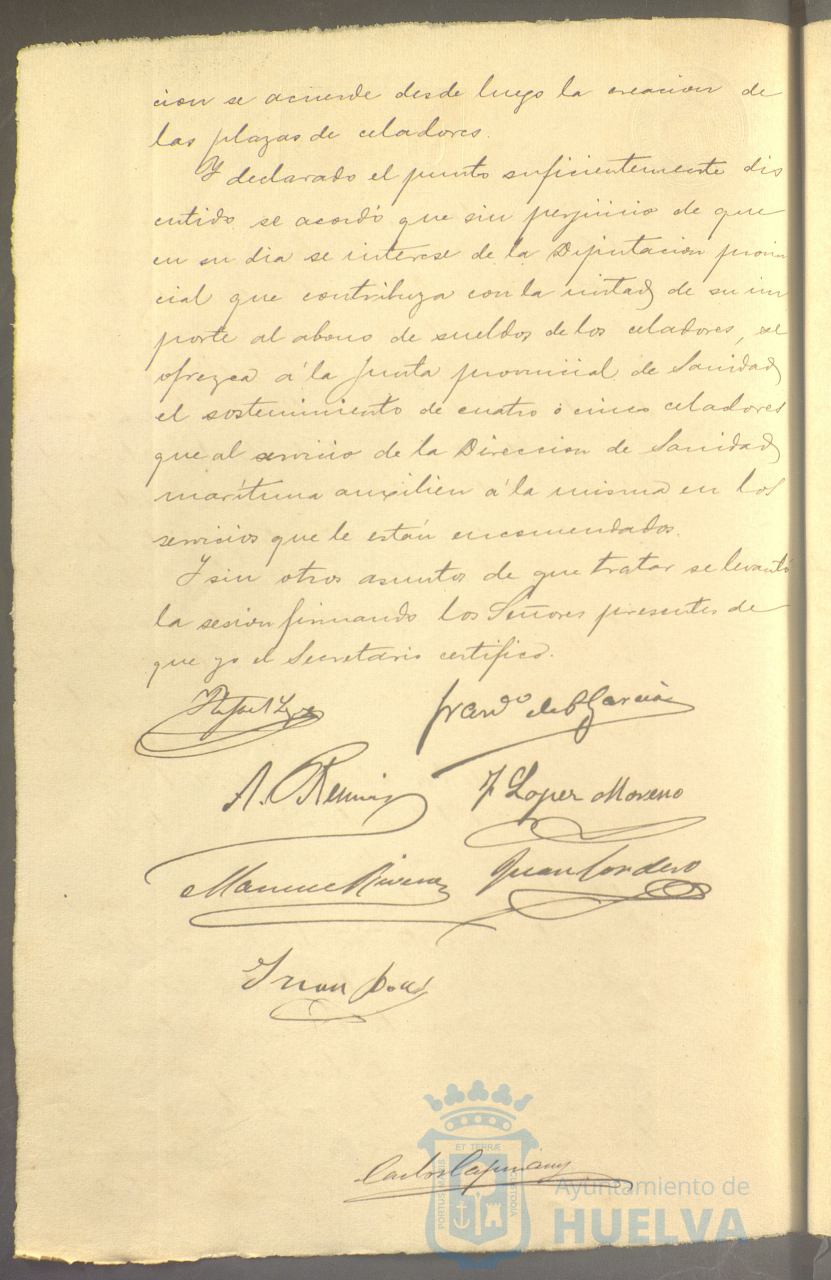 cion se acuerde desde luego la creacion de
las plazas de celadores.
Y declarado el punto suficientemente dis
cutido se acordó que sin perjuicio de que
en su dia se interese de la Diputacion provin
cial que contribuya con la mitad de su im
porte al abono de sueldos de los celadores, se
ofrezca á la Junta provincial de Sanidad
el sostenimiento de cuatro ó cinco celadores
que al servicio de la Direccion de Sanidad
marítima auxilien á la misma en los
servicios que le están encomendados.
Y sin otros asuntos de que tratar se levantó
la sesion firmando los Señores presentes de
que yo el Secretario certifico.
Franco de P Garcia
A. 
F Lopez Moreno
Manuel Rivera
Juan Cordero
Juan
ET TERRÆ
PORTUS MARIS
CUSTODIA
Carlos
Ayuntamiento de
HUELVA